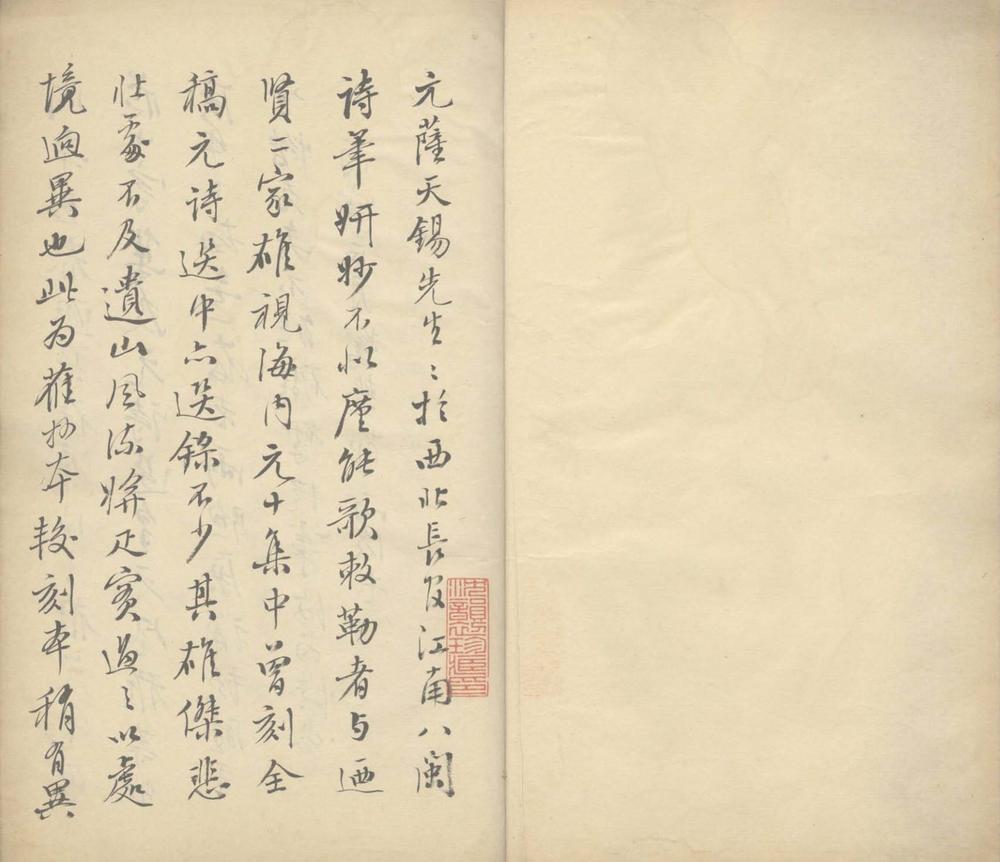 元薩天錫先生〻於西北長及江南八閩
詩筆妍妙不似廑能歌敕勒者与迺
賢二家雄視海内元十集中曽刻全
稿元詩選中亦選録不少其雄傑悲
壯處不及遺山風流婍疋實過之以處
境迥異也此為舊抄本較刻本稍有異